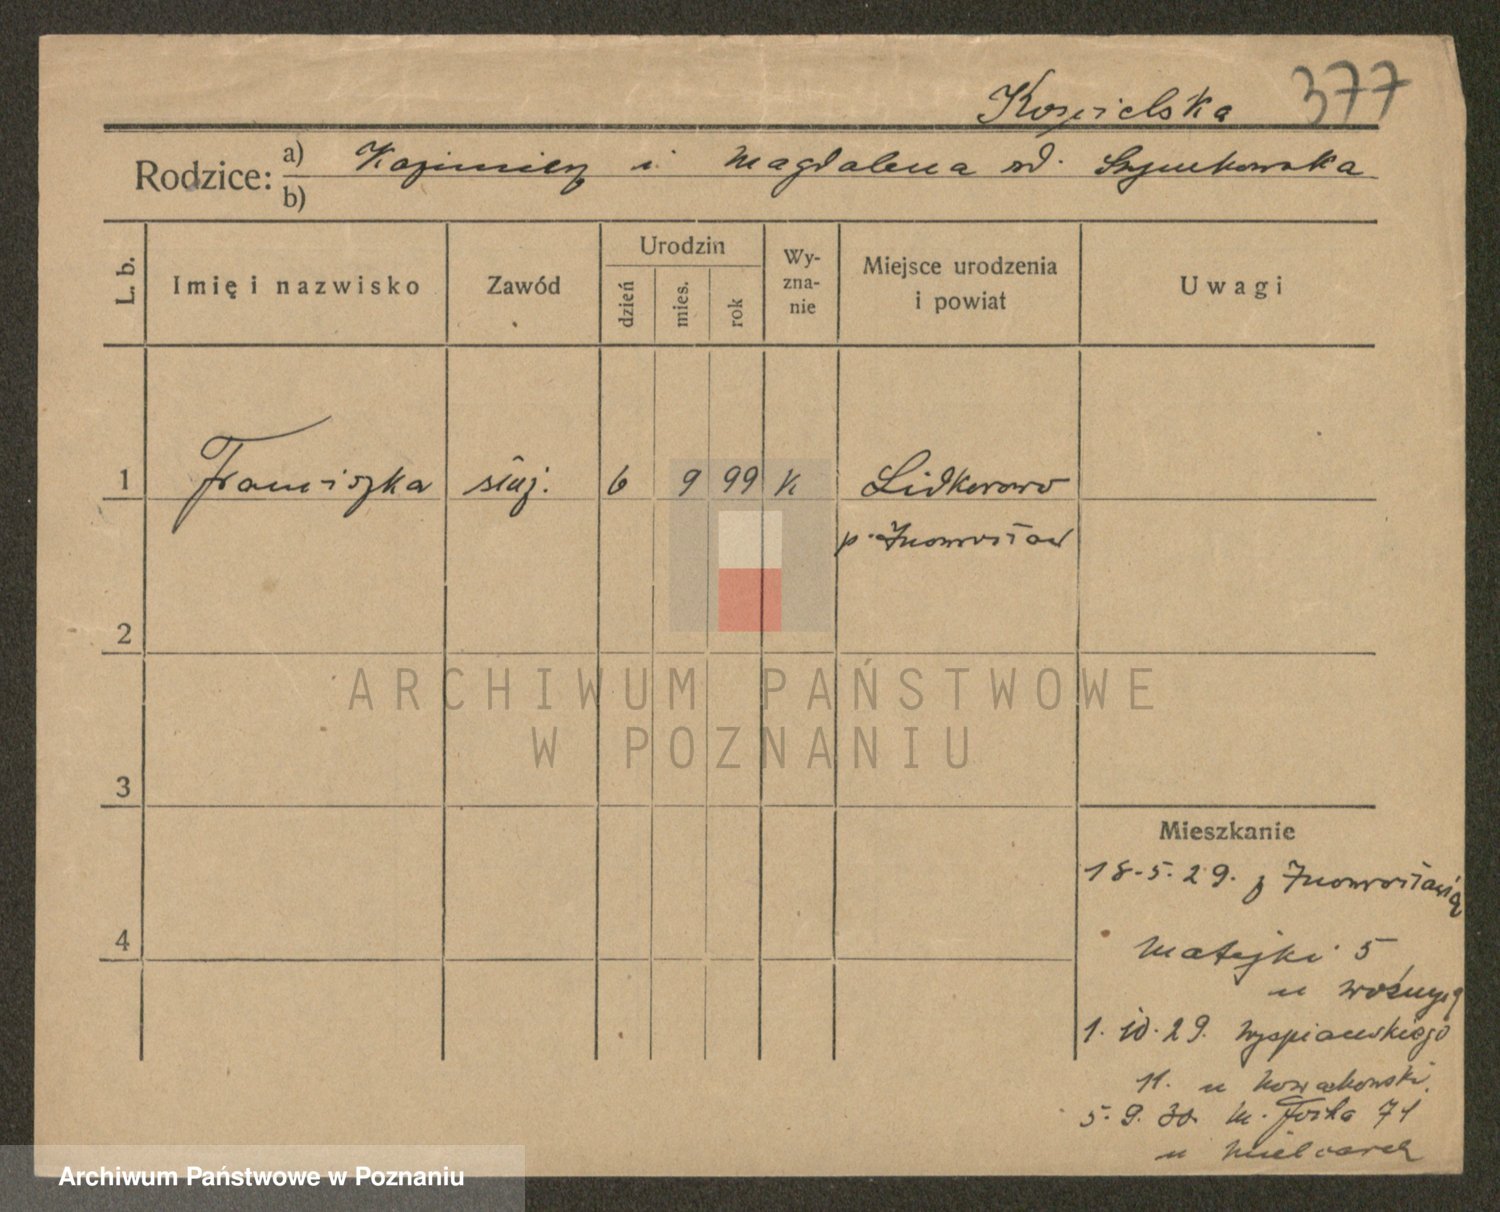 Kościelska 377
Rodzice: a) Kazimierz i Magdalena
b)
L. b.
Imię i nazwisko
Zawód
Urodzin
dzień
mies.
rok
Wy-
zna-
nie
Miejsce urodzenia
i powiat
Uwagi
1 Franciszka służ. 6 9 99 k
p. Inowrocław
2
3
4
Mieszkanie
18.5.29. z Inowrocławia
Matejki 5
u
1.10.29. Wyspiańskiego
11. u Nowakowski
5.9.30. M. Focha 71
u Mielcarek
ARCHIWUM PAŃSTWOWE
W POZNANIU
Archiwum Państwowe w Poznaniu